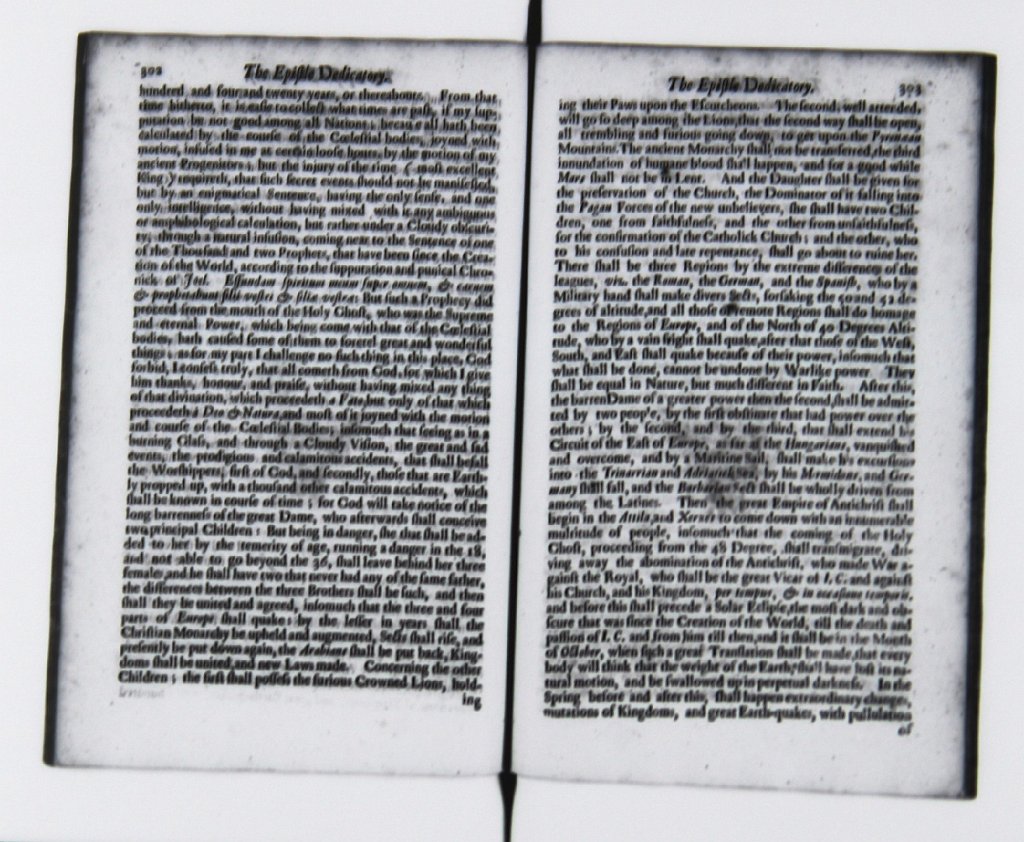 302 The Epistle Dedicatory.
hundred and four and twenty years, or thereabouts. From that
time hitherto, it is easie to collect what times are past, if my sup-
putation be not good among all Nations; because all hath been
calculated by the course of the Cœlestial bodies, joyned with
motion, infused in me at certain loose hours, by the motion of my
ancient Progenitors; but the injury of the time (most excellent
King) requireth, that such secret events should not be manifested,
but by an enigmatical Sentence, having the only sense, and one
only intelligence, without having mixed with it any ambiguous
or amphibological calculation, but rather under a Cloudy obscuri-
ty; through a natural infusion, coming near to the Sentence of one
of the Thousand and two Prophets, that have been since the Crea-
tion of the World, according to the supputation and punical Chro-
nicle of Joel. Effundam spiritum meum super omnem, & carnem
& prophetabunt filii vestri & filiæ vestræ: But such a Prophecy did
proceed from the mouth of the Holy Ghost, who was the Supreme
and eternal Power, which being come with that of the Cœlestial
bodies, hath caused some of them to foretel great and wonderful
things; as for my part I challenge no such thing in this place, God
forbid, I confess truly, that all cometh from God, for which I give
him thanks, honour, and praise, without having mixed any thing
of that divination, which proceedeth à Fato, but only of that which
proceedeth à Deo & Natura, and most of it joyned with the motion
and course of the Cœlestial Bodies; insomuch that seeing as in a
burning Glass, and through a Cloudy Vision, the great and sad
events, the prodigious and calamitous accidents, that shall befall
the Worshippers, first of God, and secondly, those that are Earth-
ly propped up, with a thousand other calamitous accidents, which
shall be known in course of time; for God will take notice of the
long barrenness of the great Dame, who afterwards shall conceive
two principal Children: But being in danger, she that shall be ad-
ded to her by the temerity of age, running a danger in the 18,
and not able to go beyond the 36, shall leave behind her three
females, and he shall have two that never had any of the same father,
the differences between the three Brothers shall be such, and then
shall they be united and agreed, insomuch that the three and four
parts of Europe shall quake: by the lesser in years shall the
Christian Monarchy be upheld and augmented, Sects shall rise, and
presently be put down again, the Arabians shall be put back, King-
doms shall be united, and new Laws made. Concerning the other
Children; the first shall possess the furious Crowned Lions, hold-
ing
The Epistle Dedicatory. 303
ing their Paws upon the Escutcheons. The second, well attended,
will go so deep among the Lions, that the second way shall be open,
all trembling and furious going down, to get upon the Pyrenean
Mountains. The ancient Monarchy shall not be transferred, the third
innundation of humane blood shall happen, and for a good while
Mars shall not be in Lent. And the Daughter shall be given for
the preservation of the Church, the Dominator of it falling into
the Pagan Forces of the new unbelievers, she shall have two Chil-
dren, one from faithfulness, and the other from unfaithfulness,
for the confirmation of the Catholick Church; and the other, who
to his confusion and late repentance, shall go about to ruine her.
There shall be three Regions by the extreme differences of the
leagues, viz. the Roman, the German, and the Spanish, who by a
Military hand shall make divers Sects, forsaking the 50 and 52 de-
grees of altitude, and all those of remote Regions shall do homage
to the Regions of Europe, and of the North of 40 Degrees Alti-
tude, who by a vain fright shall quake, after that those of the West,
South, and East shall quake because of their power, insomuch that
what shall be done, cannot be undone by Warlike power. They
shall be equal in Nature, but much different in Faith. After this,
the barren Dame of a greater power then the second, shall be admit-
ted by two people, by the first obstinate that had power over the
others; by the second, and by the third, that shall extend his
Circuit of the East of Europe, as far as the Hungarians, vanquished
and overcome, and by a Maritine Sail, shall make his excursions
into the Trinacrian and Adriatick Sea by his Mermidons, and Ger-
many shall fall, and the Barbarian Sect shall be wholly driven from
among the Latines. Then the great Empire of Antichrist shall
begin in the Attila, and Xerxes to come down with an innumerable
multitude of people, insomuch that the coming of the Holy
Ghost, proceeding from the 48 Degree, shall transmigrate, dri-
ving away the abomination of the Antichrist, who made War a-
gainst the Royal, who shall be the great Vicar of I. C. and against
his Church, and his Kingdom, per tempus, & in occasione temporis,
and before this shall precede a Solar Eclipse, the most dark and ob-
scure that was since the Creation of the World, till the death and
passion of I. C. and from him till then, and it shall be in the Month
of October, when such a great Translation shall be made, that every
body will think that the weight of the Earth, shall have lost its na-
tural motion, and be swallowed up in perpetual darkness. In the
Spring before and after this, shall happen extraordinary changes,
mutations of Kingdoms, and great Earth-quakes, with pullulation
of